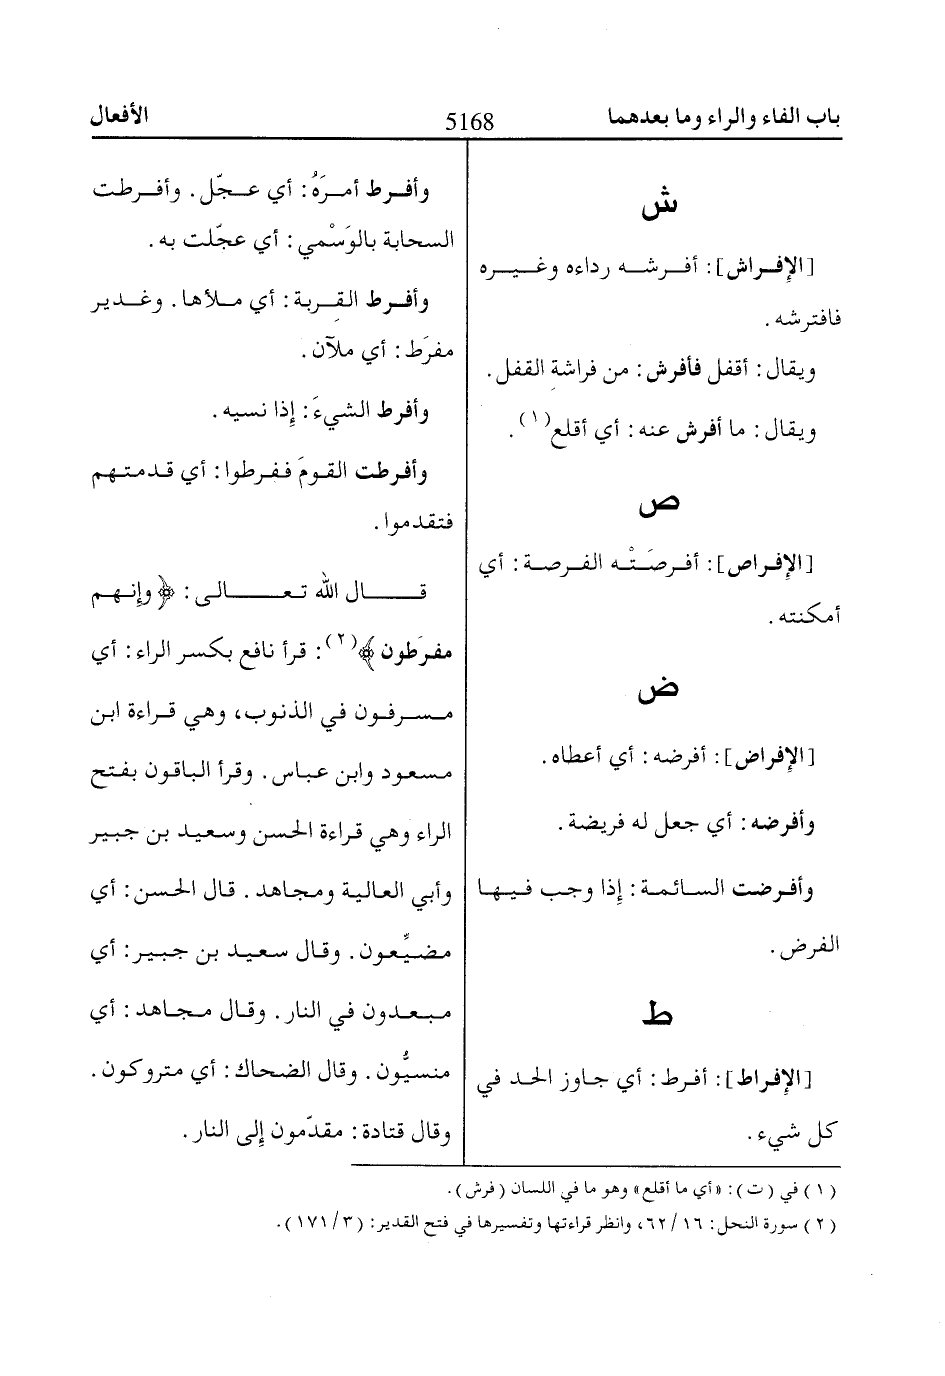 باب الفاء والراء وما بعدهما 5168 الأفعال
ش
[الإفراش]: أفرشه رداءه وغيره
فافترشه.
ويقال: أقفل فأفرش: من فراشة القفل.
ويقال: ما أفرش عنه: أي أقلع(١).
ص
[الإفراص]: أفرصَتْه الفرصة: أي
أمكنته.
ض
[الإفراض]: أفرضه: أي أعطاه.
وأفرضه: أي جعل له فريضة.
وأفرضت السائمة: إذا وجب فيها
الفرض.
ط
[الإفراط]: أفرط: أي جاوز الحد في
كل شيء.
وأفرط أمرَهُ: أي عجّل. وأفرطت
السحابة بالوَسْمي: أي عجّلت به.
وأفرط القربة: أي ملأها. وغدير
مفرَط: أي ملآن.
وأفرط الشيءَ: إذا نسيه.
وأفرطت القومَ ففرطوا: أي قدمتهم
فتقدموا.
قال الله تعالى: ﴿وإنهم
مفرَطون﴾(٢): قرأ نافع بكسر الراء: أي
مسرفون في الذنوب، وهي قراءة ابن
مسعود وابن عباس. وقرأ الباقون بفتح
الراء وهي قراءة الحسن وسعيد بن جبير
وأبي العالية ومجاهد. قال الحسن: أي
مضيَّعون. وقال سعيد بن جبير: أي
مبعدون في النار. وقال مجاهد: أي
منسيُّون. وقال الضحاك: أي متروكون.
وقال قتادة: مقدّمون إلى النار.
(١) في (ت): «أي ما أقلع» وهو ما في اللسان (فرش).
(٢) سورة النحل: ١٦/ ٦٢، وانظر قراءتها وتفسيرها في فتح القدير: (٣/ ١٧١).